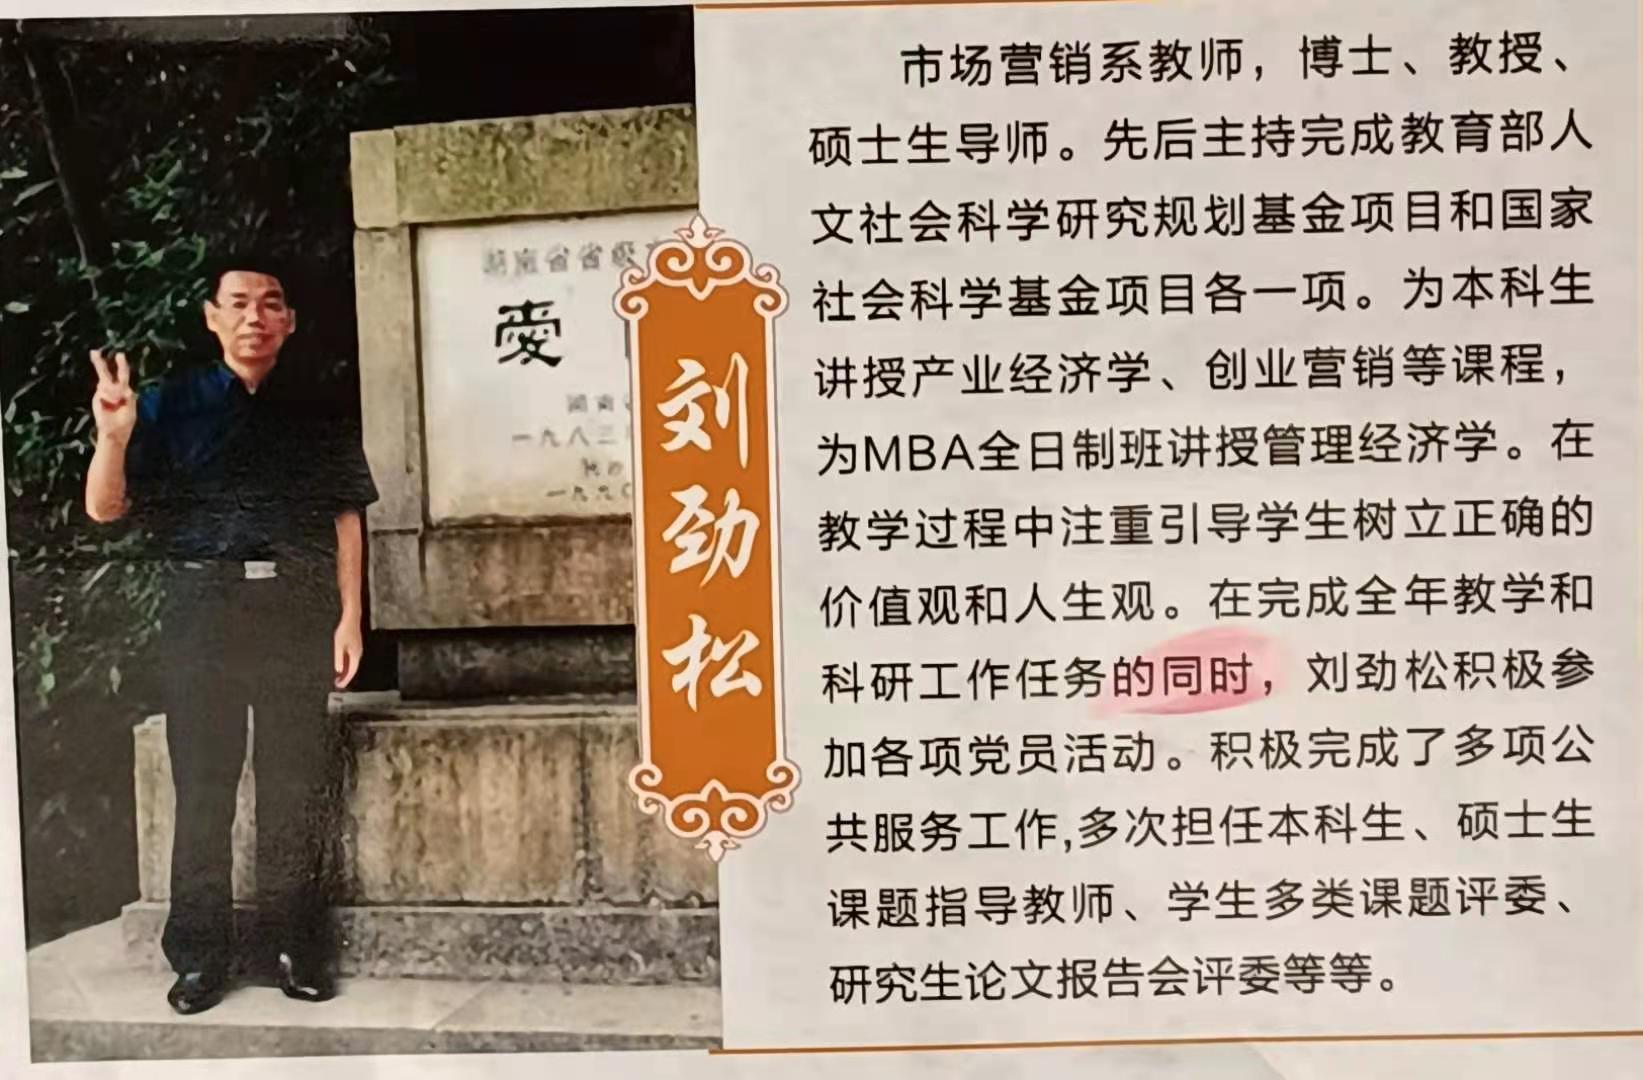 湖南省省级文
愛
湖南省
一九八三年
一九九〇
刘劲松
市场营销系教师，博士、教授、
硕士生导师。先后主持完成教育部人
文社会科学研究规划基金项目和国家
社会科学基金项目各一项。为本科生
讲授产业经济学、创业营销等课程，
为MBA全日制班讲授管理经济学。在
教学过程中注重引导学生树立正确的
价值观和人生观。在完成全年教学和
科研工作任务的同时，刘劲松积极参
加各项党员活动。积极完成了多项公
共服务工作,多次担任本科生、硕士生
课题指导教师、学生多类课题评委、
研究生论文报告会评委等等。